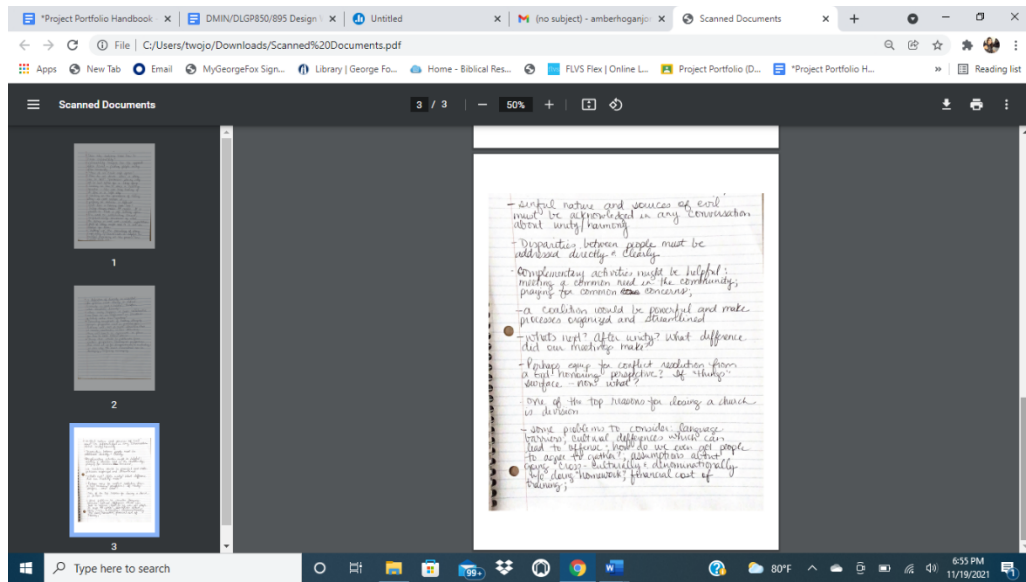 *Project Portfolio Handbook
DMIN/DLGP850/895 Design
Untitled
(no subject) - amberhoganjo
Scanned Documents
File | C:/Users/twojo/Downloads/Scanned%20Documents.pdf
Apps New Tab Email MyGeorgeFox Sign... Library | George Fo... Home - Biblical Res... FLVS Flex | Online L... Project Portfolio (D... *Project Portfolio H... » Reading list
Scanned Documents 3 / 3 | − 50% +
1
2
3
- sinful nature and sources of evil
must be acknowledged in any conversation
about unity/harmony
- Disparities between people must be
addressed directly & clearly
- Complementary activities might be helpful:
meeting a common need in the community;
praying for common concerns;
- a coalition would be powerful and make
processes organized and streamlined
- whats next? After unity? What difference
did our meeting make?
- Perhaps equip for conflict resolution from
a God honoring perspective? If "things"
surface - now what?
- one of the top reasons for closing a church
is division
- some problems to consider: language
barriers, cultural differences which can
lead to offense, how do we even get people
to agree to gather?, assumptions about
going "cross-culturally & denominationally
w/o doing "homework"; financial cost of
training;
Type here to search
99+
80°F
6:55 PM
11/19/2021